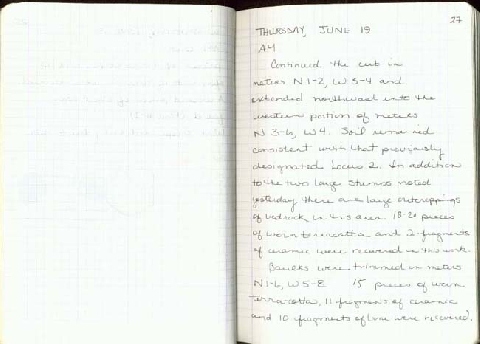 27
THURSDAY, JUNE 19
AM
Continued the cut in
meters N1-2, W5-4 and
extended northward into the
western portion of meters
N3-6, W4. Soil remained
consistent with that previously
designated Locus 2. In addition
to the two large stones noted
yesterday there are large outcroppings
of bedrock in this area. 18-20 pieces
of worn terracotta and 2 fragments
of ceramic were recovered in this work.
Baulks were trimmed in meters
N1-6, W5-8 15 pieces of worn
terracotta, 11 fragments of ceramic
and 10 fragments of bone were recovered.